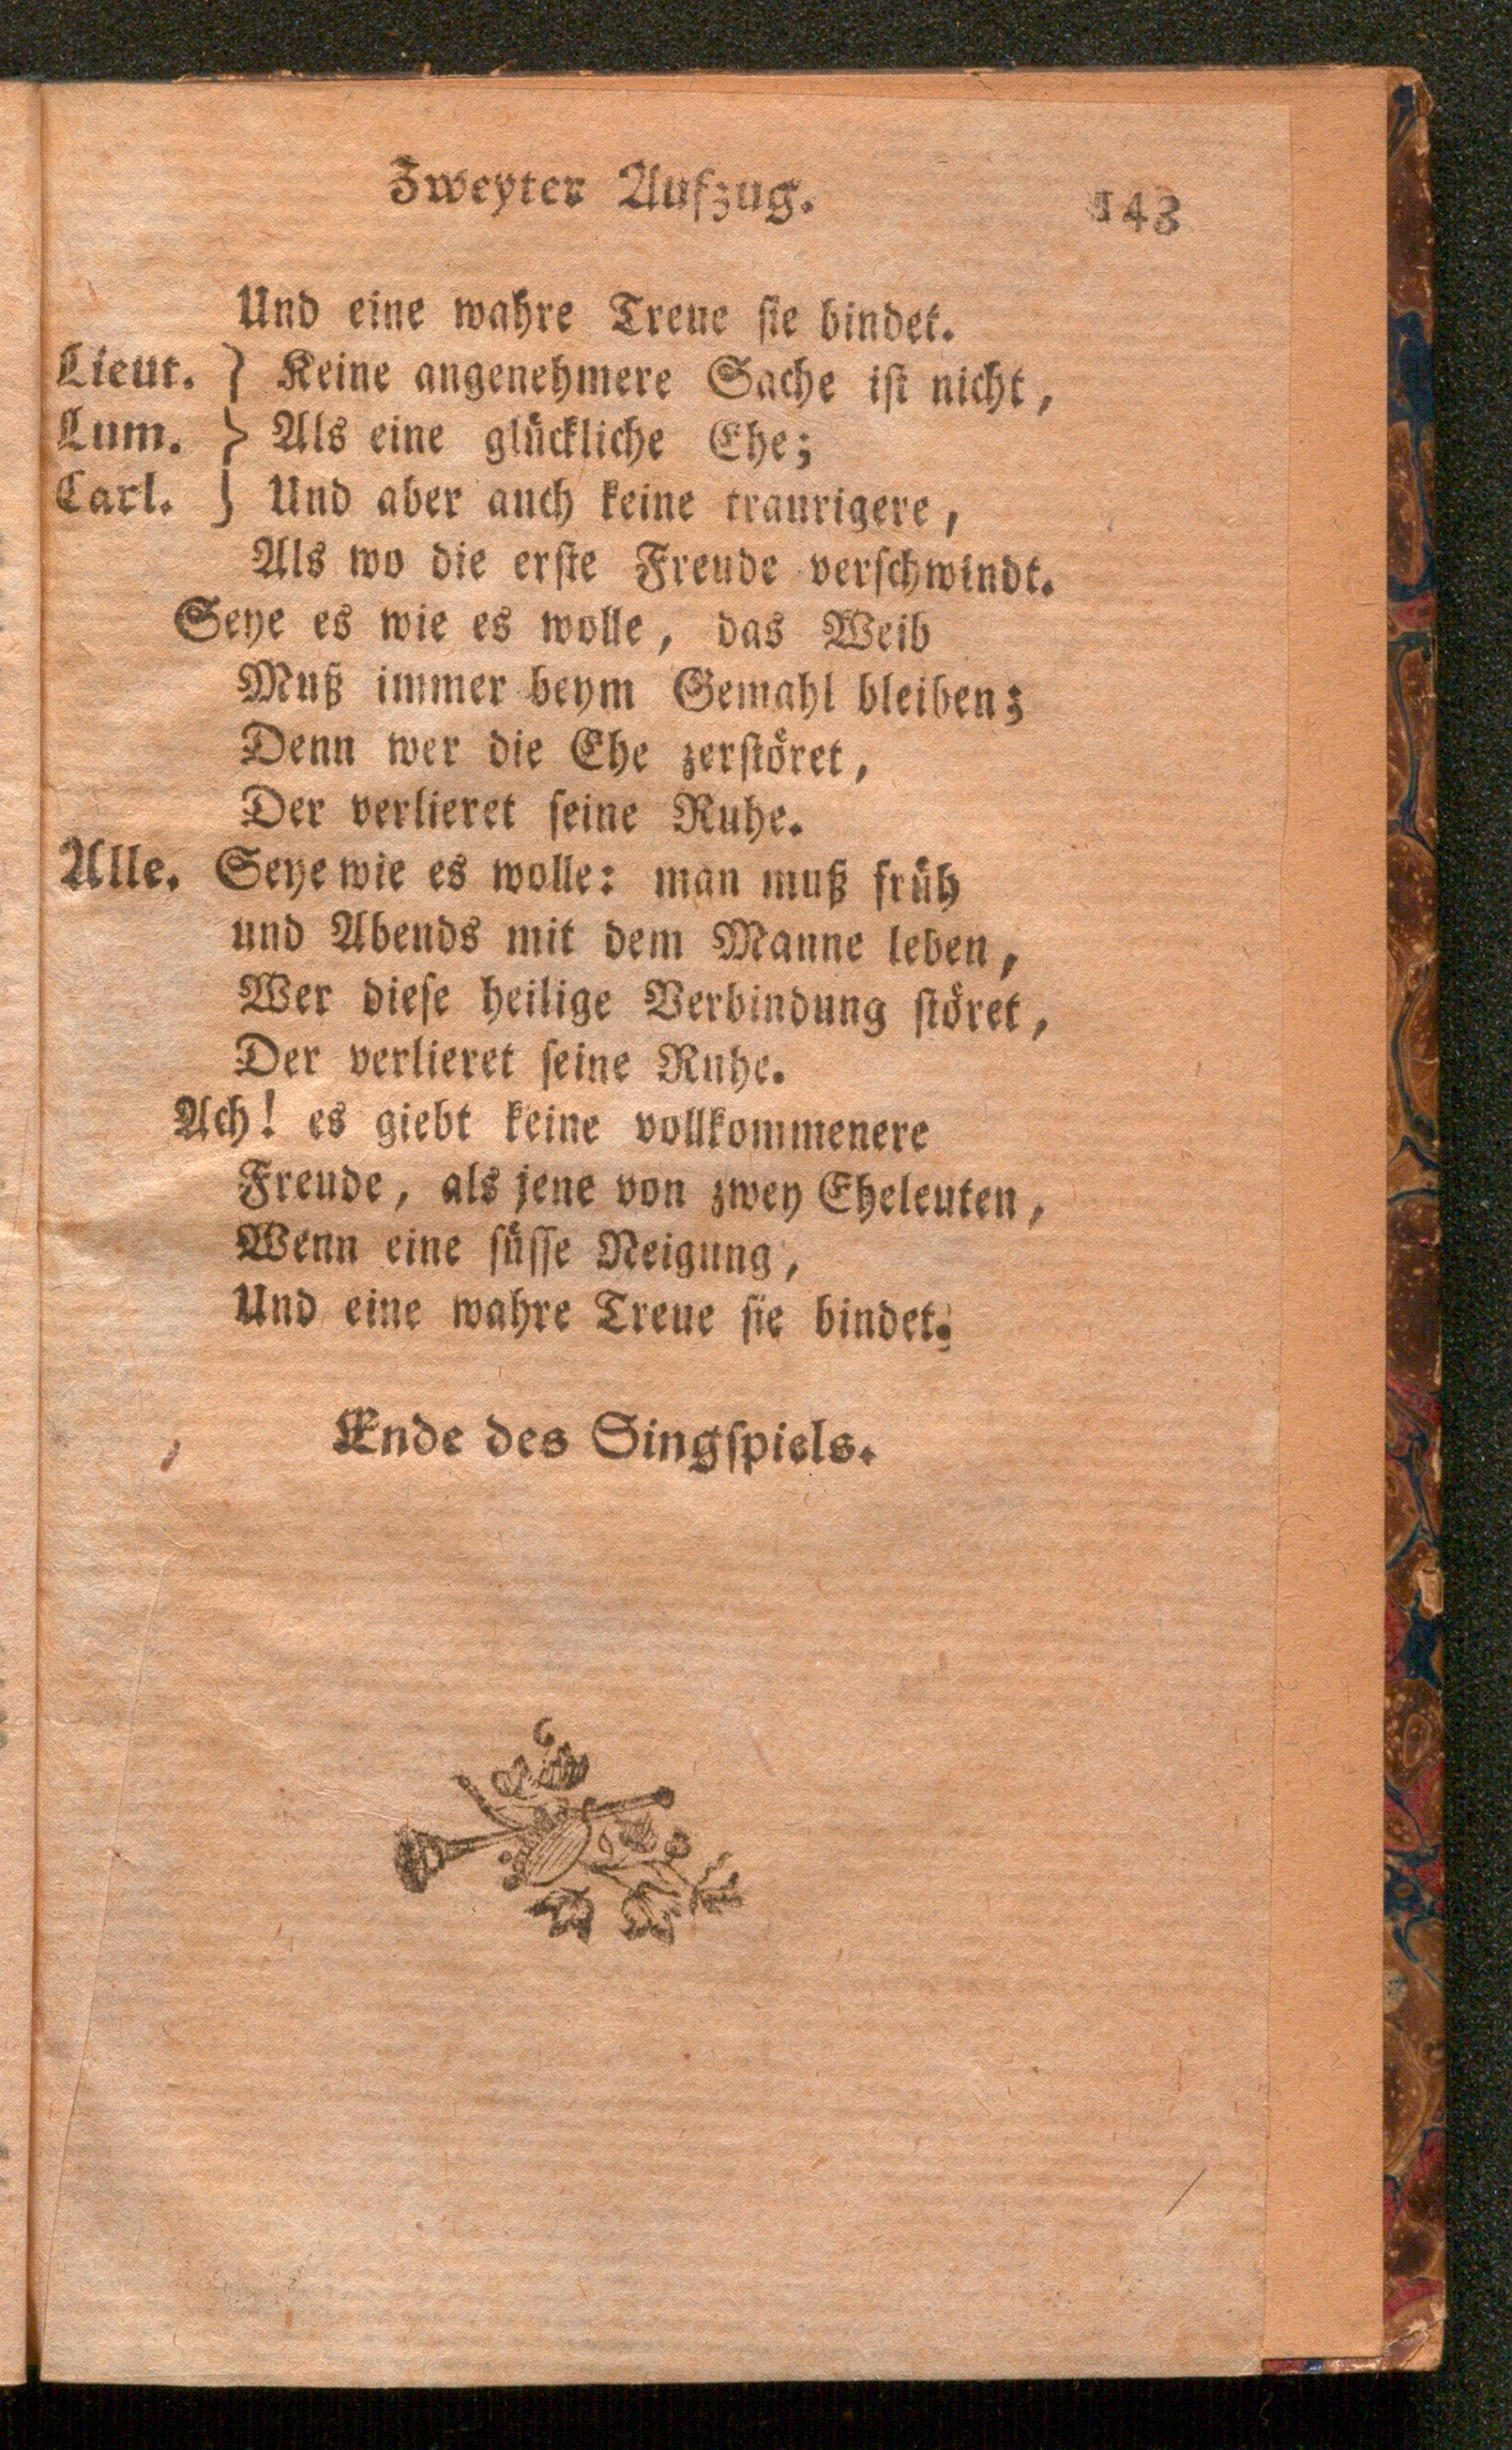 Zweyter Aufzug. 143
Und eine wahre Treue sie bindet.
Lieut. } Keine angenehmere Sache ist nicht,
Lum. } Als eine glückliche Ehe;
Carl. } Und aber auch keine traurigere,
Als wo die erste Freude verschwindt.
Seye es wie es wolle, das Weib
Muß immer beym Gemahl bleiben;
Denn wer die Ehe zerstöret,
Der verlieret seine Ruhe.
Alle. Seye wie es wolle: man muß früh
und Abends mit dem Manne leben,
Wer diese heilige Verbindung störet,
Der verlieret seine Ruhe.
Ach! es giebt keine vollkommenere
Freude, als jene von zwey Eheleuten,
Wenn eine süsse Neigung,
Und eine wahre Treue sie bindet.
Ende des Singspiels.